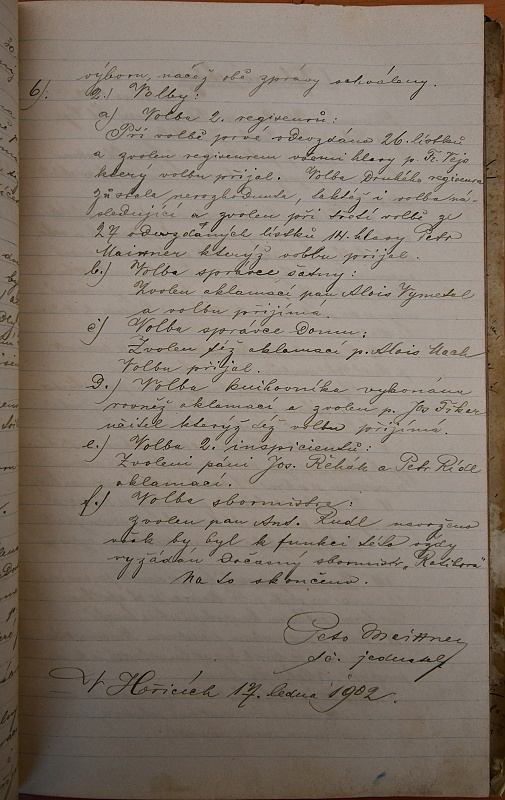 výboru, načež obě zprávy schváleny.
6). 2.) Volby:
a) Volba 2. regiseurů:
Při volbě prvé odevzdáno 26 lístků
a zvolen regiseurem všemi hlasy p. Fr. Vejs
který volbu přijal. Volba druhého regiseura
zůstala nerozhodnuta, taktéž i volba ná-
sledující a zvolen při třetí volbě ze
27 odevzdaných lístků 14. hlasy Petr
Meissner kterýž volbu přijal.
b.) Volba správce šatny:
Zvolen aklamací pan Alois Vymetal
a volbu přijímá.
c) Volba správce domu:
Zvolen též aklamací p. Alois Mach
Volbu přijal.
D.) Volba knihovníka vykonána
rovněž aklamací a zvolen p. Jos.
učitel kterýž též volbu přijímá.
e.) Volba 2. inspicientů:
Zvoleni páni Jos. Řehák a Petr Rídl
aklamací.
f.) Volba sbormistra:
zvolen pan Ant. Rudl navrženo
však by byl k funkci této vždy
vyžádán dočasný sbormistr „Ratibora"
Na to skončeno.
Petr Meissner
t. č. jednatel
V Hořicích 17. ledna 1902.